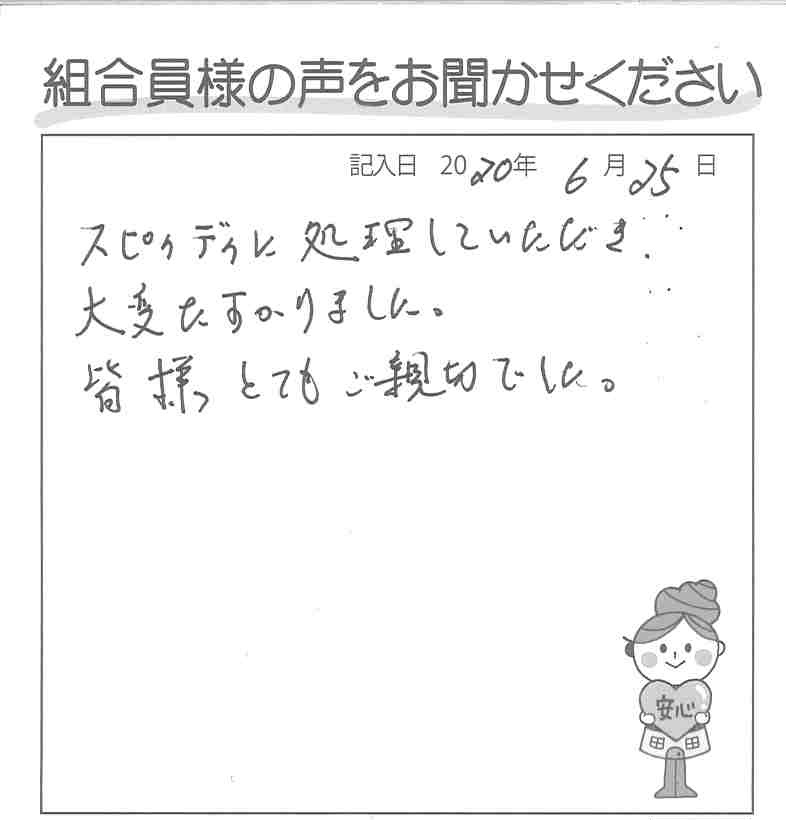 組合員様の声をお聞かせください
記入日 2020年 6月25日
スピィディに処理していただき、
大変たすかりました。
皆様、とてもご親切でした。
安心